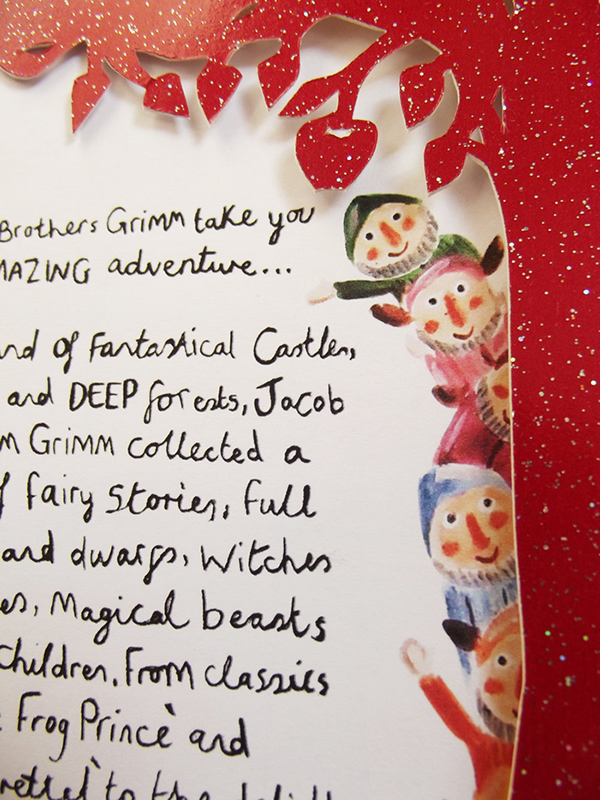 Brothers Grimm take you
MAZING adventure...
nd of Fantastical Castles,
and DEEP forests, Jacob
m Grimm collected a
f fairy Stories, full
and dwarfs, Witches
es, Magical beasts
Children. From classics
Frog Prince' and
retel' to the